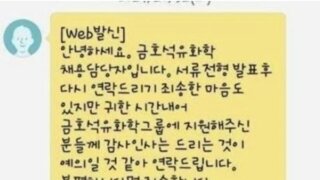 [Web발신]
안녕하세요. 금호석유화학
채용담당자입니다. 서류전형 발표후
다시 연락드리기 죄송한 마음도
있지만 귀한 시간내어
금호석유화학그룹에 지원해주신
분들께 감사인사는 드리는 것이
예의일 것 같아 연락드립니다.